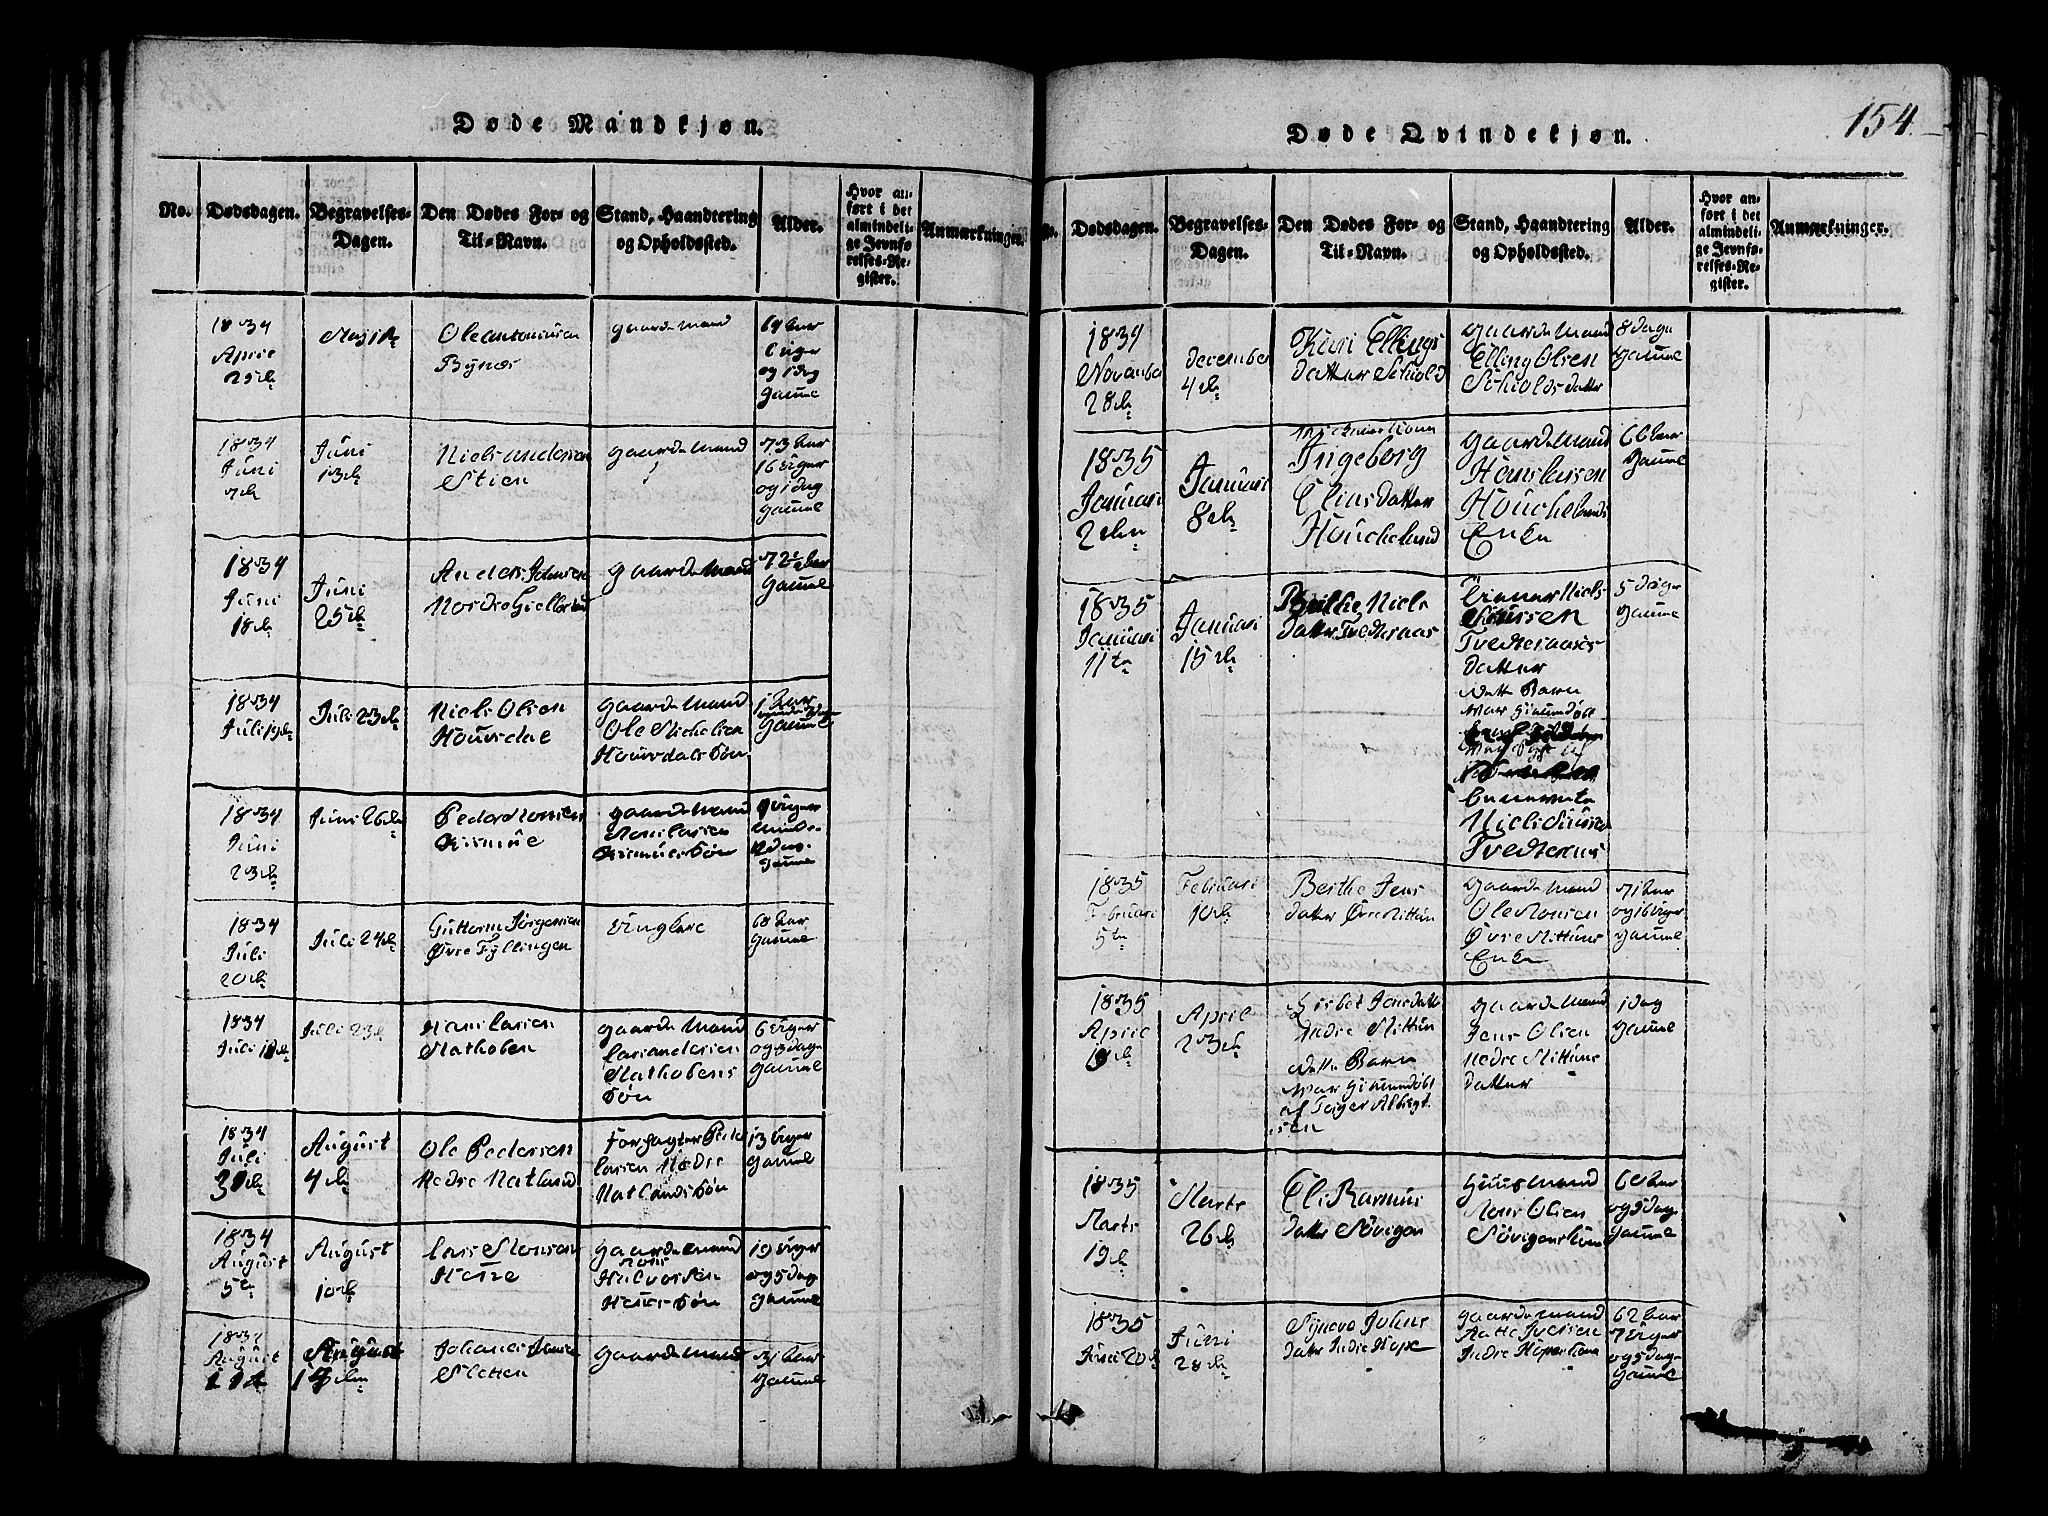 Døde Mandkjøn.
No.
Dødsdagen.
Begravelses-
Dagen.
Den Dødes For- og
Til-Navn.
Stand, Haandtering
og Opholdssted.
Alder.
Hvor an-
ført i det
almindeli-
ge Jevnfø-
relses-Re-
gister.
Anmærkninger.
1834
April
25de
Maj
Ole antoniusen
Bynes
gaardemand
og 1 dag
gamle
1834
Juni
7de
Juni
13de
Niels andersen
Stien
gaardemand
73 aar
16 uger
og 1 dag
gamle
1834
Juni
18de
Juni
25de
Anders Johnsen
gaardemand
72½ aar
gamle
1834
Juli 19de
Juli 23de
Niels Olsen
Houvsdal
gaardemand
Ole Nichelsen
Houvsdals Søn
1 aar
gamle
1834
Juni
23de
Juni 26de
Peder Monsen
gaardemand
Mons larsen
Søn
9 uger
gamle
1834
Juli
20de
Juli 24de
Guttorm Jørgensen
Øvre Fyllingen
ungkarl
68 aar
gamle
1834
Juli
Juli 23de
Hans larsen
Natholen
gaardemand
lars andersen
Natholens
søn
6 uger
og 5 dage
gamle
1834
Juli
31de
August
4de
Ole Pedersen
Nedre Natland
forpagter Peder
larsen Nedre
Natlands Søn
13 uger
gamle
1834
August
5te
August
10de
lars Monsen
gaardemand
Mons
Halvorsen
Søn
19 uger
og 5 dag
gamle
1834
August
August
Johannes
Sletten
gaardemand
31 aar
gamle
154.
Døde Qvindekjøn.
No.
Dødsdagen.
Begravelses-
Dagen.
Den Dødes For- og
Til-Navn.
Stand, Haandtering
og Opholdssted.
Alder.
Hvor an-
ført i det
almindeli-
ge Jevnfø-
relses-Re-
gister.
Anmærkninger.
1834
November
28de
december
4de
Kari Ellings
datter Schiold
gaardemand
Elling Olsen
Schiolds datter
8 dage
gamle
1835
Januari
2den
Januari
8de
Ingeborg
Eliasdatter
Houcheland
gaardemand
Hans larsen
Houchelands
Enke
66 aar
gamle
1835
Januari
11te
Januari
15de
Berthe Niels
datter Tvedteraas
Niels
Tvedteraases
datter
dette Barn
war giemmedøbt
af
Niels
Tvedteraas
5 uger
gamle
1835
Februari
5te
Februari
10de
Berthe Jens
datter Øvre Nittun
gaardemand
Ole Monsen
Øvre Nittuns
Enke
71 aar
og 16 uger
gamle
1835
April
April
23de
Lisbet Jensdatter
Nedre Nittun
dette Barn
war giemmedøbt
af
sen
gaardemand
Jens Olsen
Nedre Nittuns
datter
1 dag
gamle
1835
Marts
19de
Marts
26de
Eli Rasmus
datter Søvigen
huusmand
Mons Olsen
Søvigens kone
60 aar
og 5 dage
gamle
1835
Juni 20de
Juni
28de
Synneva Johns
datter Indre Hope
gaardemand
Indre Hopes kone
62 aar
7 uger
og 5 dage
gamle